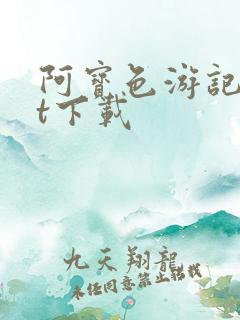 阿宝色游记
t下载
九天翔龍
未经同意禁止转载